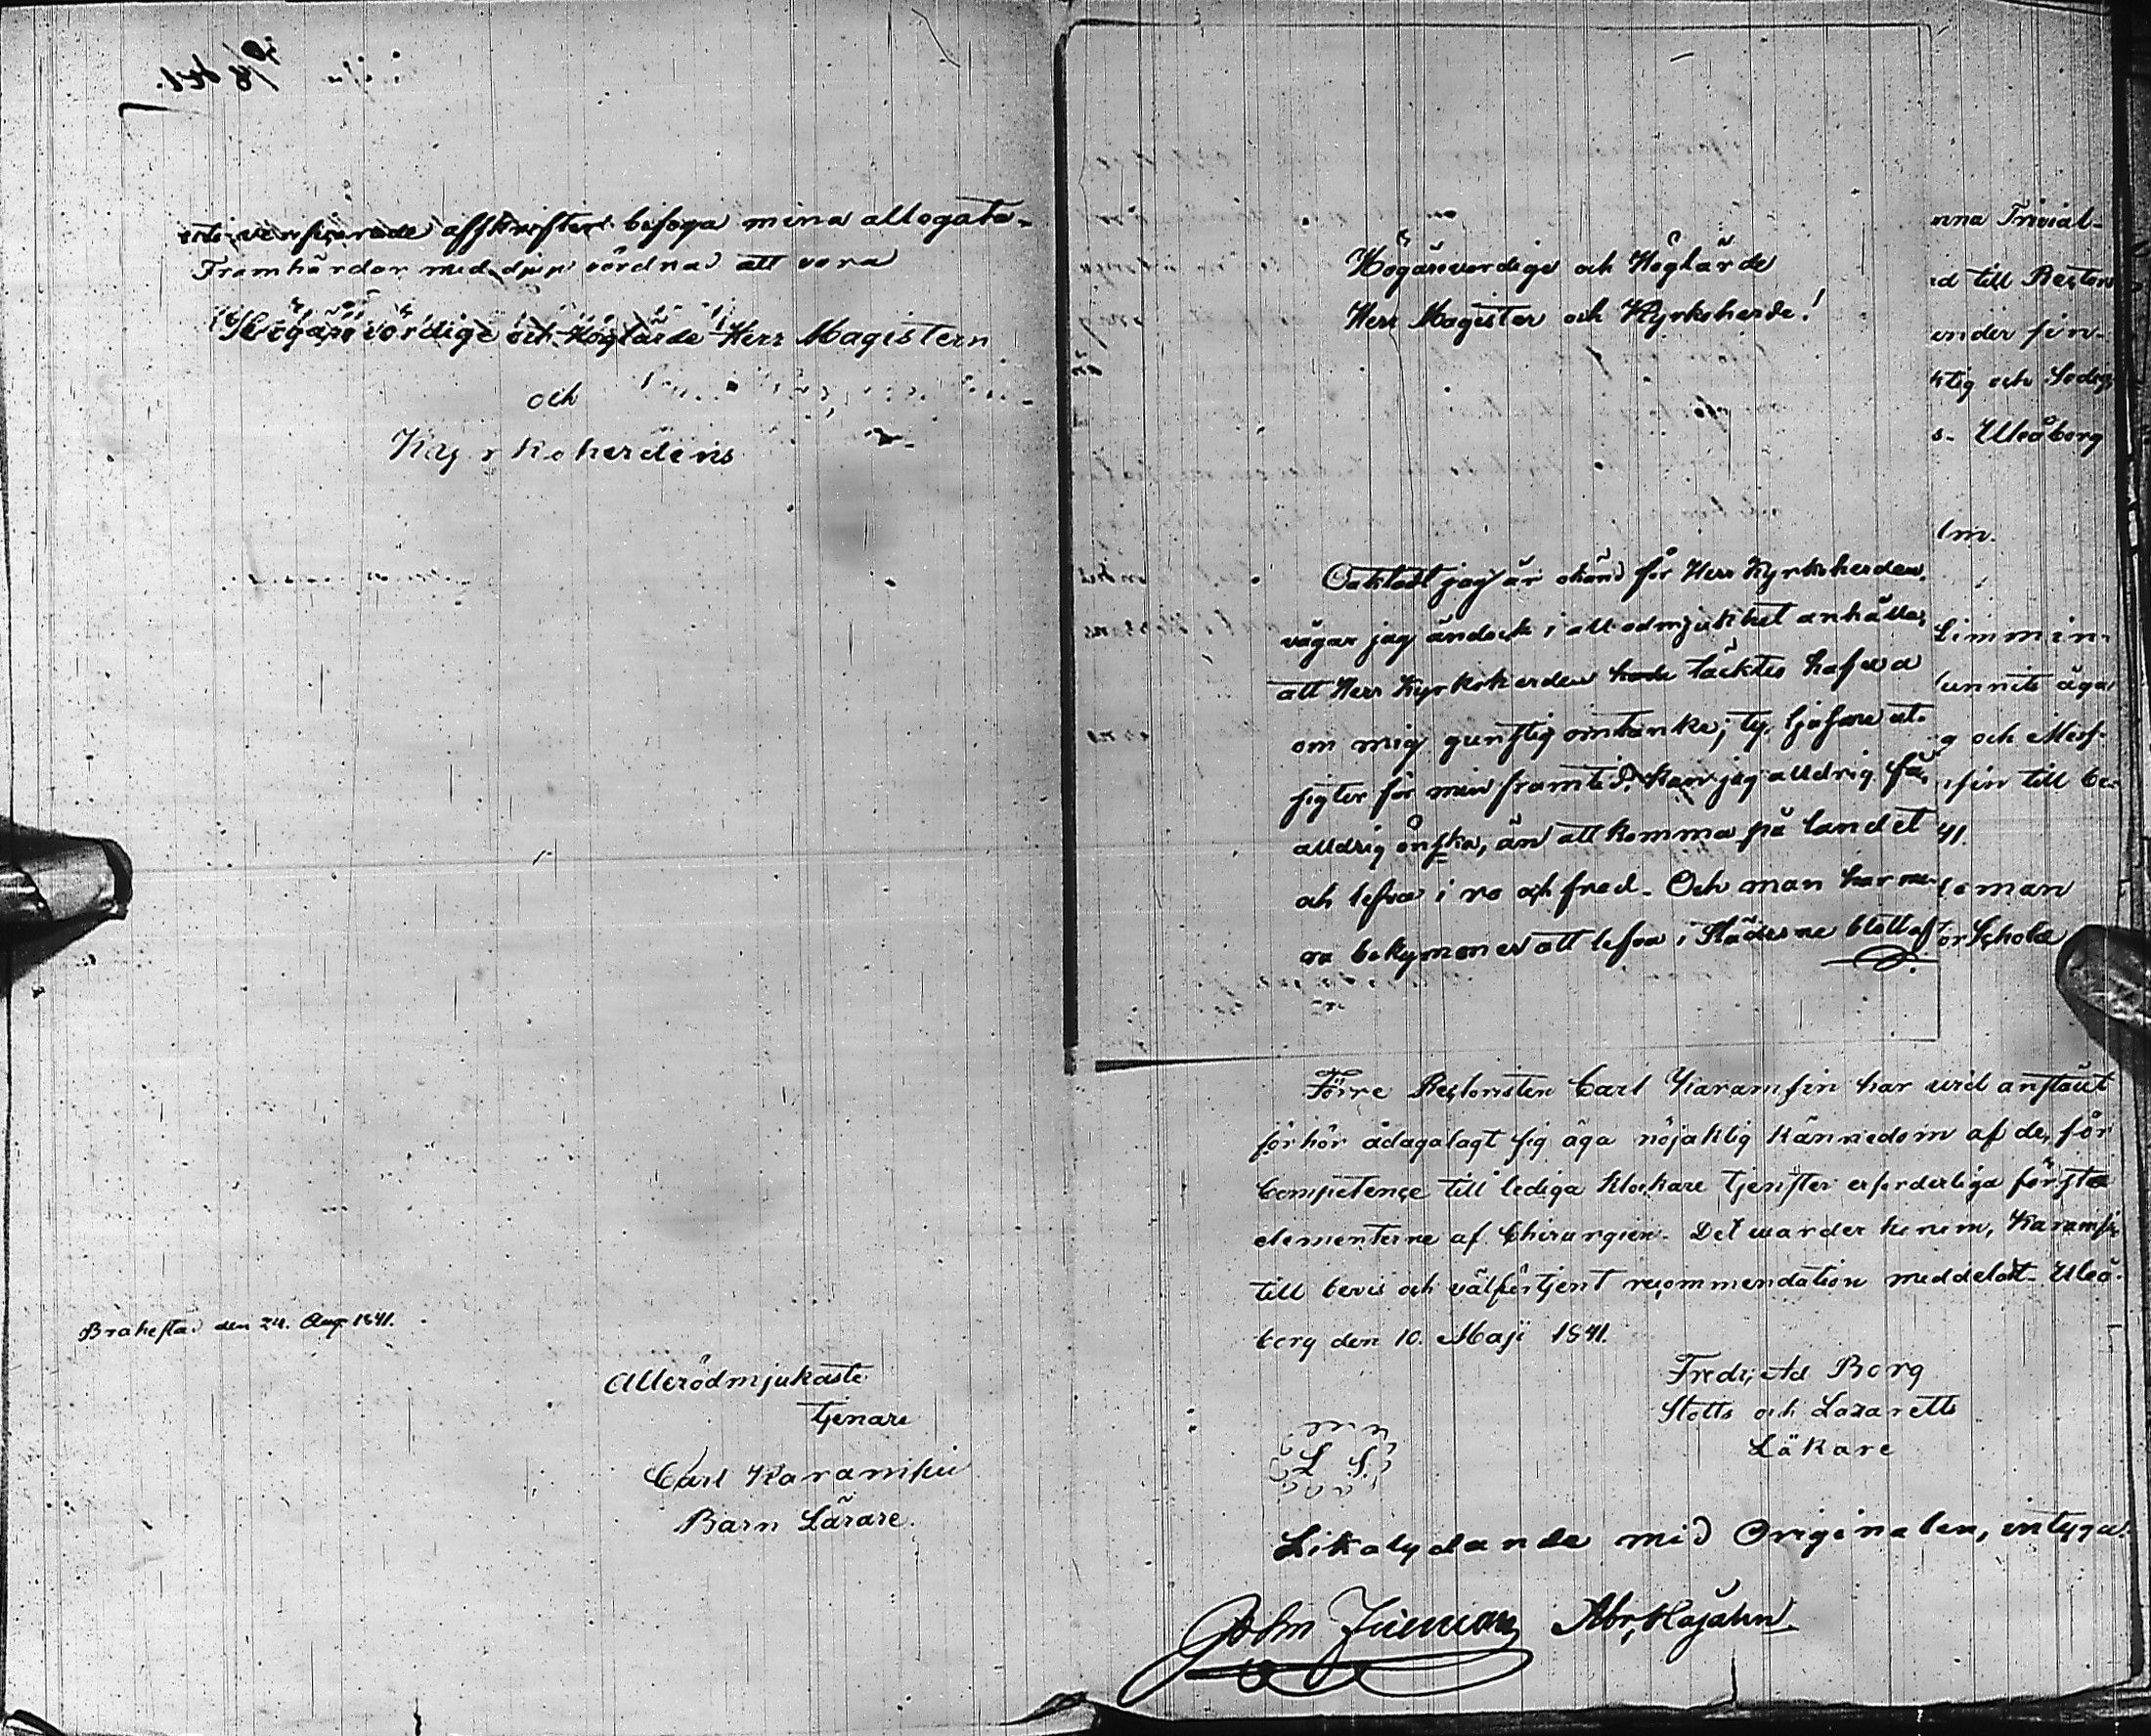 verificerade affskrifter bifoga mina allegata.
Framhärdar med djup vördnad att vara
Högärevördige och Höglärde Herr Magistern
och
Kyrkoherdens
Brahestad den 24. Aug. 1841.
Allerödmjukaste
tjenare
Carl Karamsin
Barn Lärare.
Högärevördige och Höglärde
Herr Magister och Kyrkoherde!
Oaktadt jag är okänd för Herr Kyrkoherden,
vågar jag ändock i all ödmjukhet anhålla,
att Herr Kyrkoherden täcktes hafwa
om mig gunstig omtanke; ty ljufare ut-
sigter för min framtid kan jag alldrig få,
alldrig önska, än att komma på landet
och lefva i ro och fred. Och man har me-
ra bekymmer att lefva i Städerne blott af
nna Trivial-
id till Rector
under sin
ktig och Sedig
s. Uleåborg
lm.
Limmin-
unnits äga
g och Mes-
sin till be-
41.
man
or Schola
Förre Rectoristen Carl Karamsin har wid anstäldt
förhör ådagalagt sig äga nöjaktig kännedom af de, för
Competence till lediga Klockare tjenster erforderliga första
elementerne af Chirurgien. Det warder honom, Karamsin
till bevis och välförtjent recommendation meddeladt. Uleå-
borg den 10. Maji 1841.
Fredr. Ad Borg
Slotts och Lazaretts
Läkare
L. S.
Likalydande med Originalen, intyga:
John Abr. Hojahn